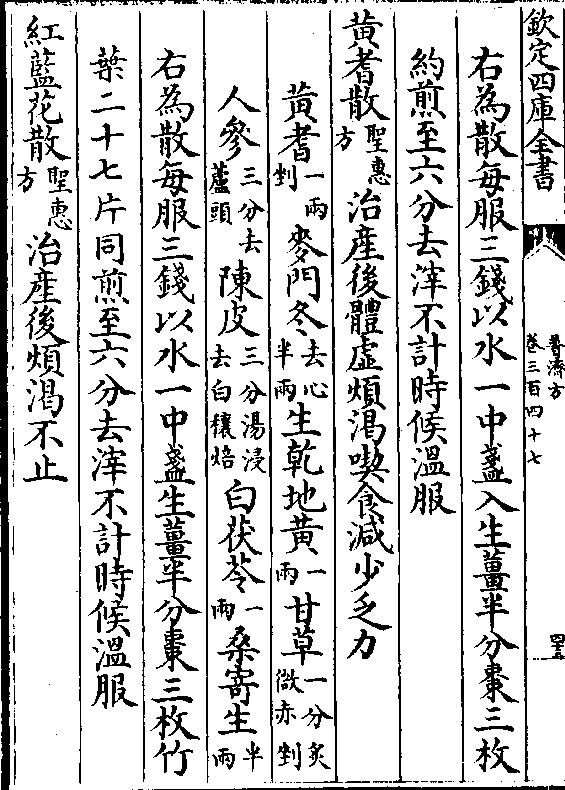 欽定四庫全書
普濟方
卷三百四十七
右為散每服三錢以水一中盞入生薑半分棗三枚
約煎至六分去滓不計時候溫服
黃耆散聖惠方治產後體虛煩渴喫食減少乏力
黃耆一兩剉麥門冬去心半兩生乾地黃一兩甘草一分炙微赤剉
人參三分去蘆頭陳皮三分湯浸去白穰焙白茯苓一兩桑寄生半兩
右為散每服三錢以水一中盞生薑半分棗三枚竹
葉二十七片同煎至六分去滓不計時候溫服
紅藍花散聖惠方治產後煩渴不止